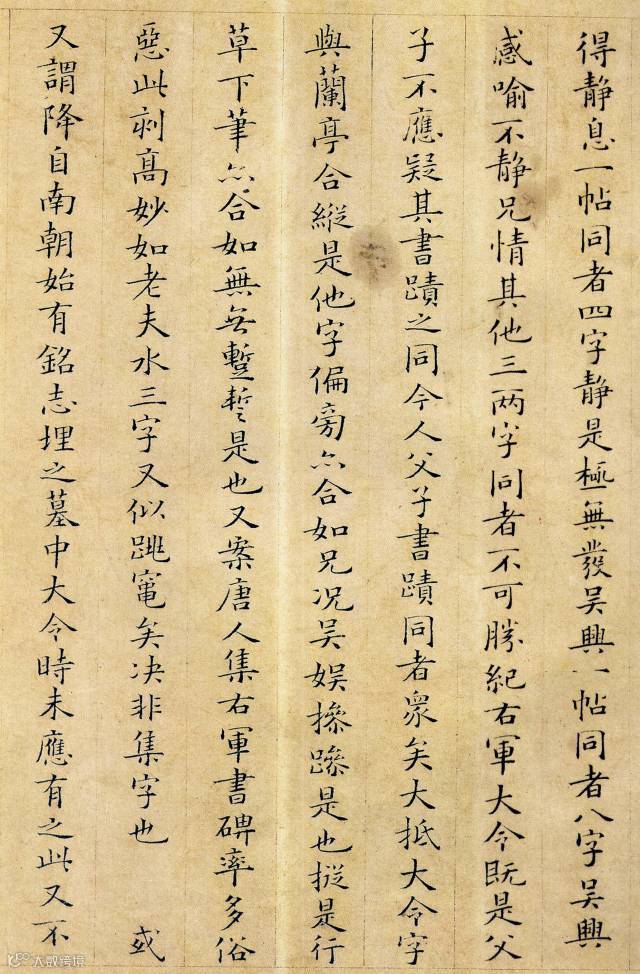 得靜息一帖同者四字靜是極無發吴興一帖同者八字吴興
感喻不靜兄情其他三兩字同者不可勝紀右軍大令既是父
子不應疑其書蹟之同今人父子書蹟同者衆矣大抵大令字
與蘭亭合縱是他字偏旁亦合如兄况吴娱摻蹤是也摐是行
草下筆亦合如無无蹔蜇是也又案唐人集右軍書碑率多俗
惡此剥高妙如老夫水三字又似跳竃矣决非集字也 或
又謂降自南朝始有銘志埋之墓中大令時未應有之此又不
大数跨境